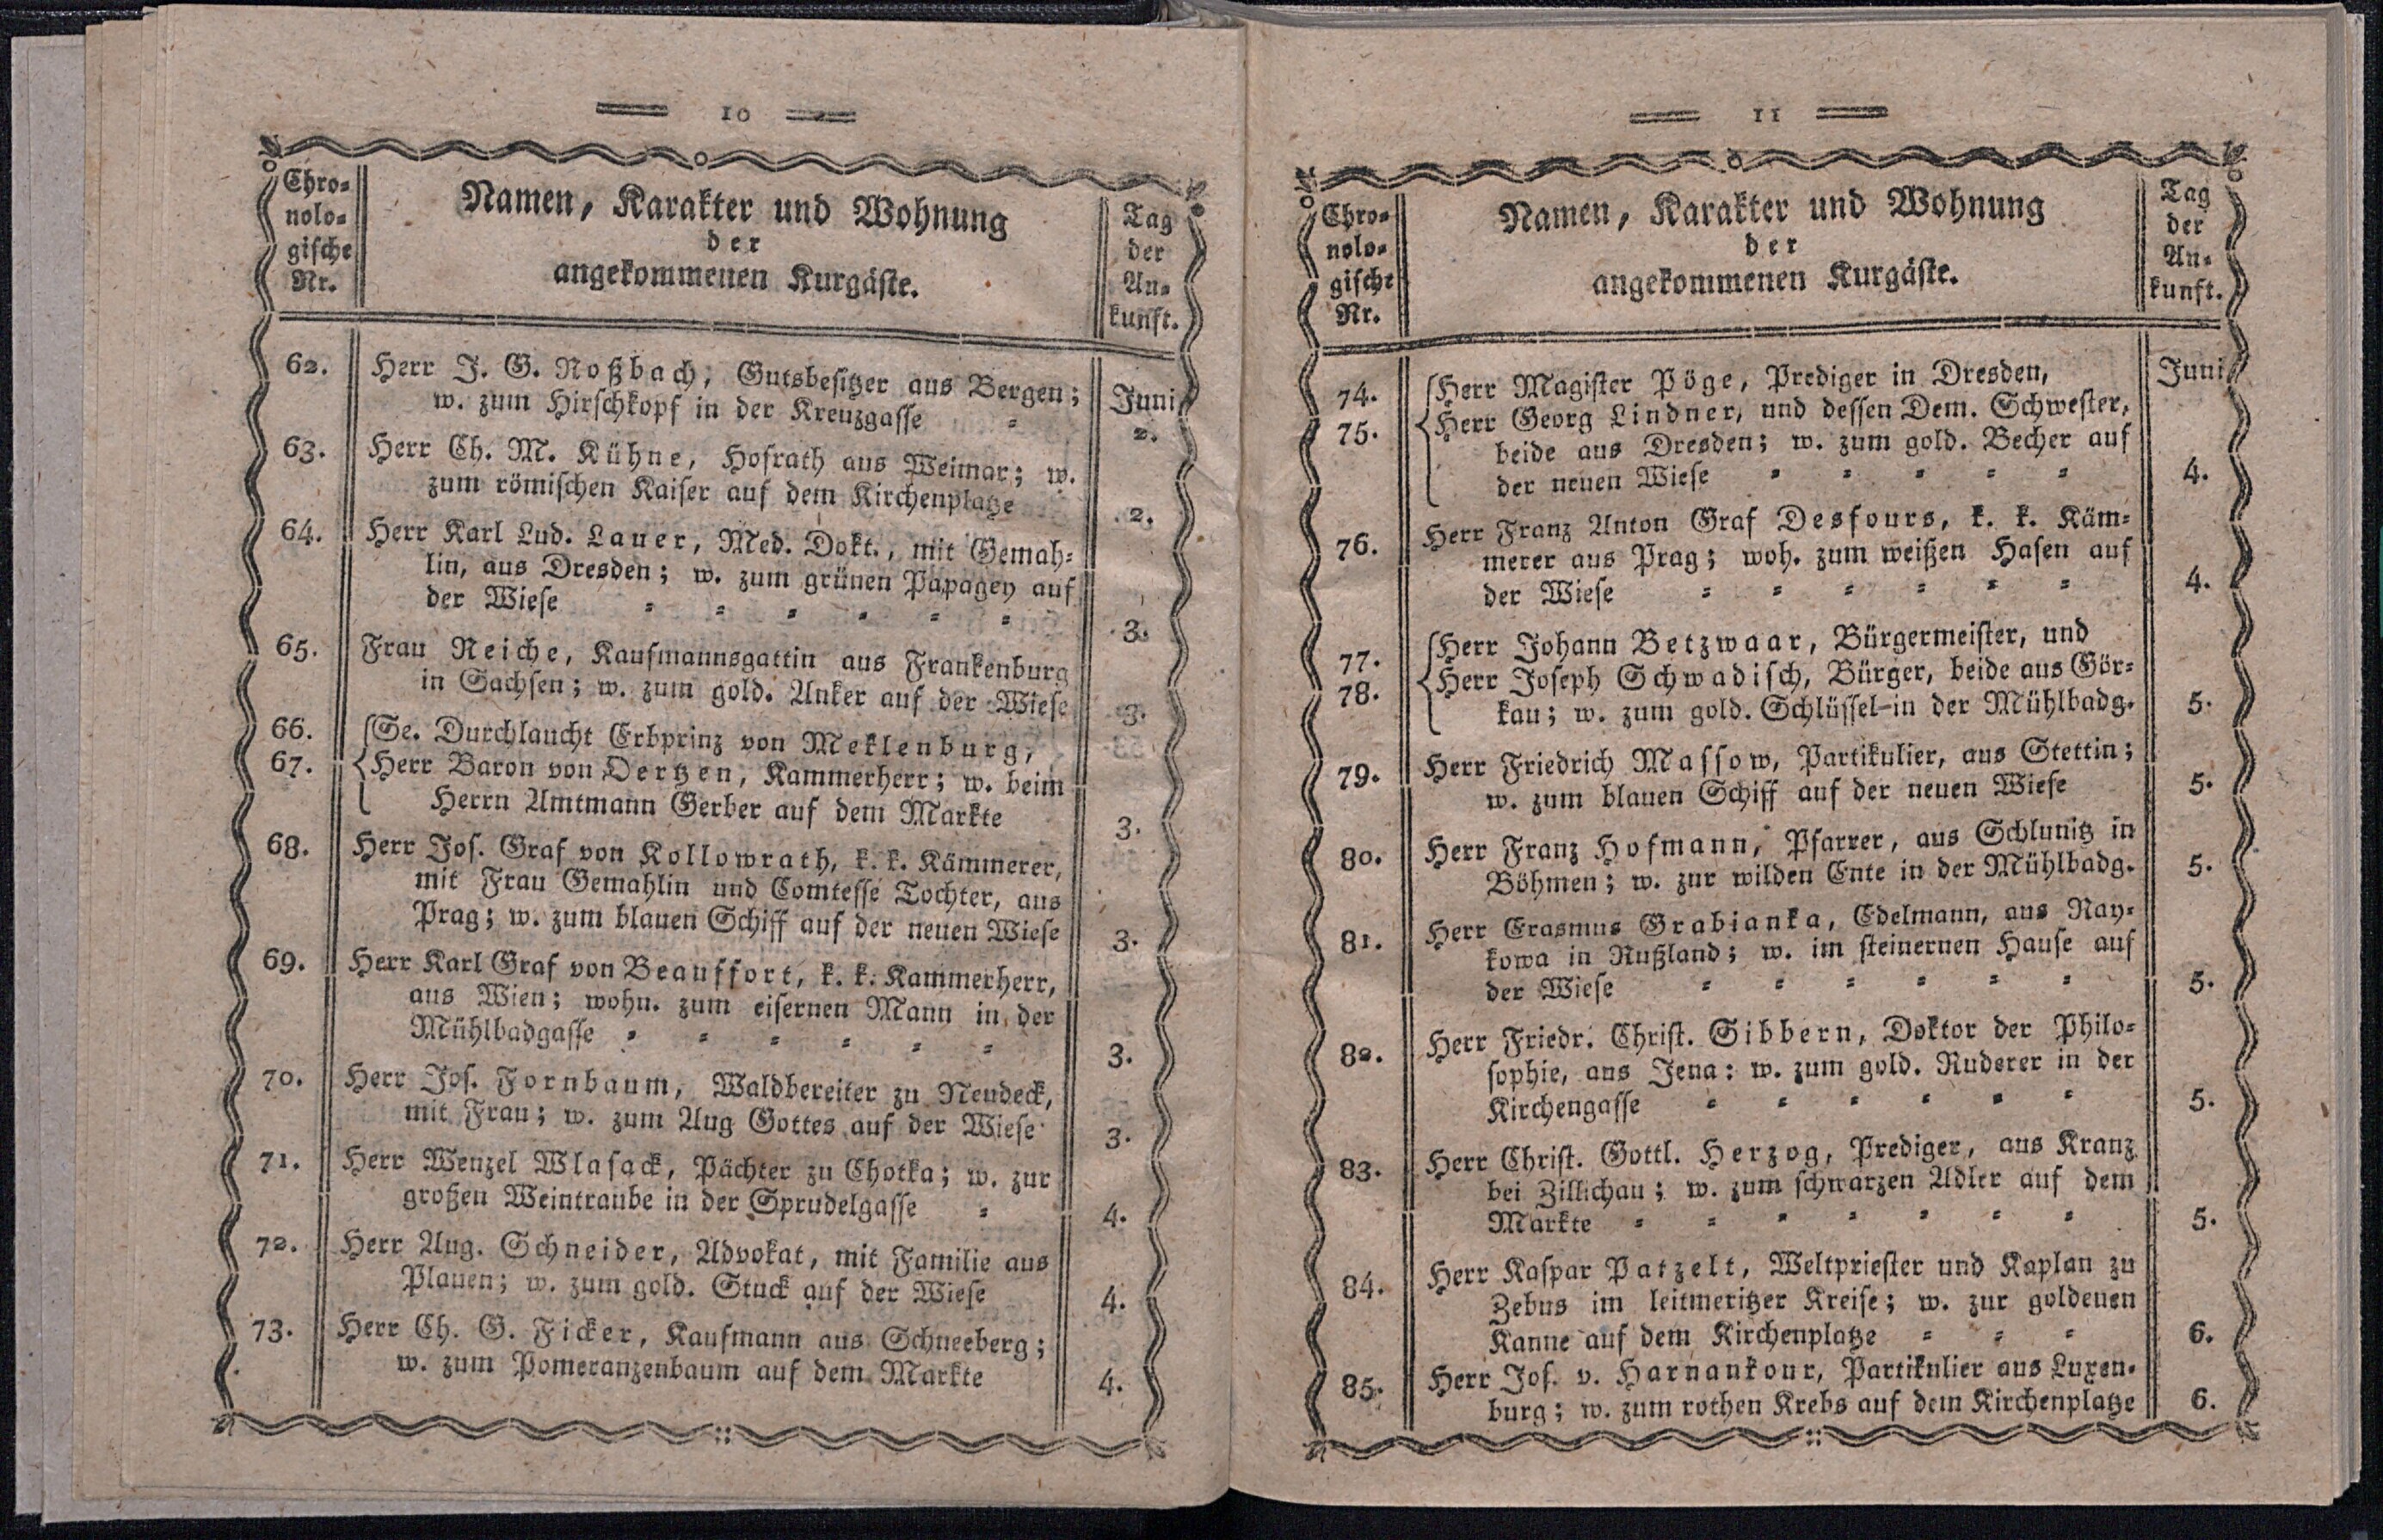 10
Chro-
nolo-
gische
Nr.
Namen, Karakter und Wohnung
der
angekommenen Kurgäste.
Tag
der
An-
kunft.
62. Herr J. G. Noßbach, Gutsbesitzer aus Bergen; Juni
w. zum Hirschkopf in der Kreuzgasse = 2.
63. Herr Ch. M. Kühne, Hofrath aus Weimar; w.
zum römischen Kaiser auf dem Kirchenplatze 2.
64. Herr Karl Lud. Lauer, Med. Dokt., mit Gemah-
lin, aus Dresden; w. zum grünen Papagey auf
der Wiese = = = = = = 3.
65. Frau Reiche, Kaufmannsgattin aus Frankenburg
in Sachsen; w. zum gold. Anker auf der Wiese 3.
66. Se. Durchlaucht Erbprinz von Meklenburg,
67. Herr Baron von Oertzen, Kammerherr; w. beim
Herrn Amtmann Gerber auf dem Markte 3.
68. Herr Jos. Graf von Kollowrath, k. k. Kämmerer,
mit Frau Gemahlin und Comtesse Tochter, aus
Prag; w. zum blauen Schiff auf der neuen Wiese 3.
69. Herr Karl Graf von Beauffort, k. k. Kammerherr,
aus Wien; wohn. zum eisernen Mann in der
Mühlbadgasse = = = = = = 3.
70. Herr Jos. Fornbaum, Waldbereiter zu Neudeck,
mit Frau; w. zum Aug Gottes auf der Wiese 3.
71. Herr Wenzel Wlasack, Pächter zu Chotka; w. zur
großen Weintraube in der Sprudelgasse = 4.
72. Herr Aug. Schneider, Advokat, mit Familie aus
Plauen; w. zum gold. Stuck auf der Wiese 4.
73. Herr Ch. G. Ficker, Kaufmann aus Schneeberg;
w. zum Pomeranzenbaum auf dem Markte 4.
11
Chro-
nolo-
gische
Nr.
Namen, Karakter und Wohnung
der
angekommenen Kurgäste.
Tag
der
An-
kunft.
74. Herr Magister Pöge, Prediger in Dresden, Juni
75. Herr Georg Lindner, und dessen Dem. Schwester,
beide aus Dresden; w. zum gold. Becher auf
der neuen Wiese = = = = = 4.
76. Herr Franz Anton Graf Desfours, k. k. Käm-
merer aus Prag; woh. zum weißen Hasen auf
der Wiese = = = = = = 4.
77. Herr Johann Betzwaar, Bürgermeister, und
78. Herr Joseph Schwadisch, Bürger, beide aus Gör-
kau; w. zum gold. Schlüssel in der Mühlbadg. 5.
79. Herr Friedrich Massow, Partikulier, aus Stettin;
w. zum blauen Schiff auf der neuen Wiese 5.
80. Herr Franz Hofmann, Pfarrer, aus Schlunitz in
Böhmen; w. zur wilden Ente in der Mühlbadg. 5.
81. Herr Erasmus Grabianka, Edelmann, aus Ray-
kowa in Rußland; w. im steinernen Hause auf
der Wiese = = = = = = 5.
82. Herr Friedr. Christ. Sibbern, Doktor der Philo-
sophie, aus Jena: w. zum gold. Ruderer in der
Kirchengasse = = = = = = 5.
83. Herr Christ. Gottl. Herzog, Prediger, aus Kranz
bei Zillichau; w. zum schwarzen Adler auf dem
Markte = = = = = = = 5.
84. Herr Kaspar Patzelt, Weltpriester und Kaplan zu
Zebus im leitmeritzer Kreise; w. zur goldenen
Kanne auf dem Kirchenplatze = = = 6.
85. Herr Jos. v. Harnankour, Partikulier aus Luxen-
burg; w. zum rothen Krebs auf dem Kirchenplatze 6.